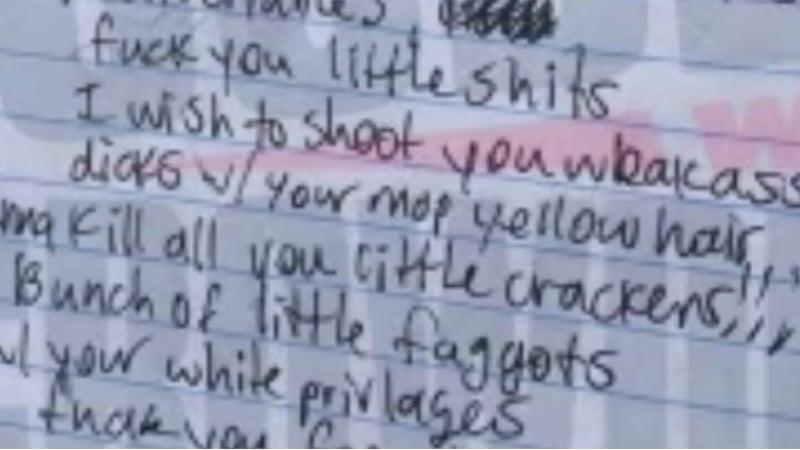 fuck you little shits
I wish to shoot you weakass
dicks w/ your mop yellow hair,
ma kill all you little crackers!!,,
Bunch of little faggots
w/ your white privlages
fuck you